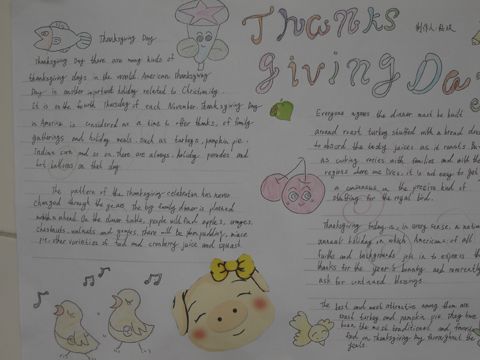 Thanks
giving Day
制作人:
Thanksgiving Day
Thanksgiving Day there are many kinds of
thanksgiving days in the world. American thanksgiving
Day is another important holiday related to Christianity.
It is on the fourth Thursday of each November. thanksgiving Day
in America is considered as a time to offer thanks, of family
gatherings and holiday meals. such as turkeys, pumpkin pie.
Indian corn and so on. there are always holiday parades and
hot balloons on that day.
The pattern of the thanksgiving celebration has never
changed through the years. The big family dinner is planned
months ahead. On the dinner table, people will find apples, oranges,
chestnuts, walnuts and grapes, there will be plum pudding, mince
pie, other varieties of food and cranberry juice and squash.
Everyone agrees the dinner must be built
around roast turkey stuffed with a bread dress
to absorb the tasty juices as it roasts. But
as cooking varies with families and with the
regions where one lives, it is not easy to get
a consensus on the precise kind of
stuffing for the royal bird.
Thanksgiving today is, in every sense, a national
annual holiday in which Americans of all
faiths and backgrounds join in to express their
thanks for the year's bounty and reverently
ask for continued blessings.
The best and most attractive among them are
roast turkey and pumpkin pie. they have
been the most traditional and favorite
food on Thanksgiving day throughout the